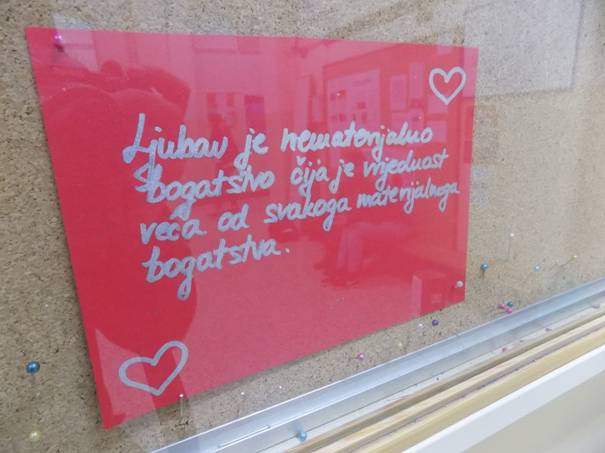 Ljubav je nematerijalno
bogatstvo čija je vrijednost
veća od svakoga materijalnoga
bogatstva.